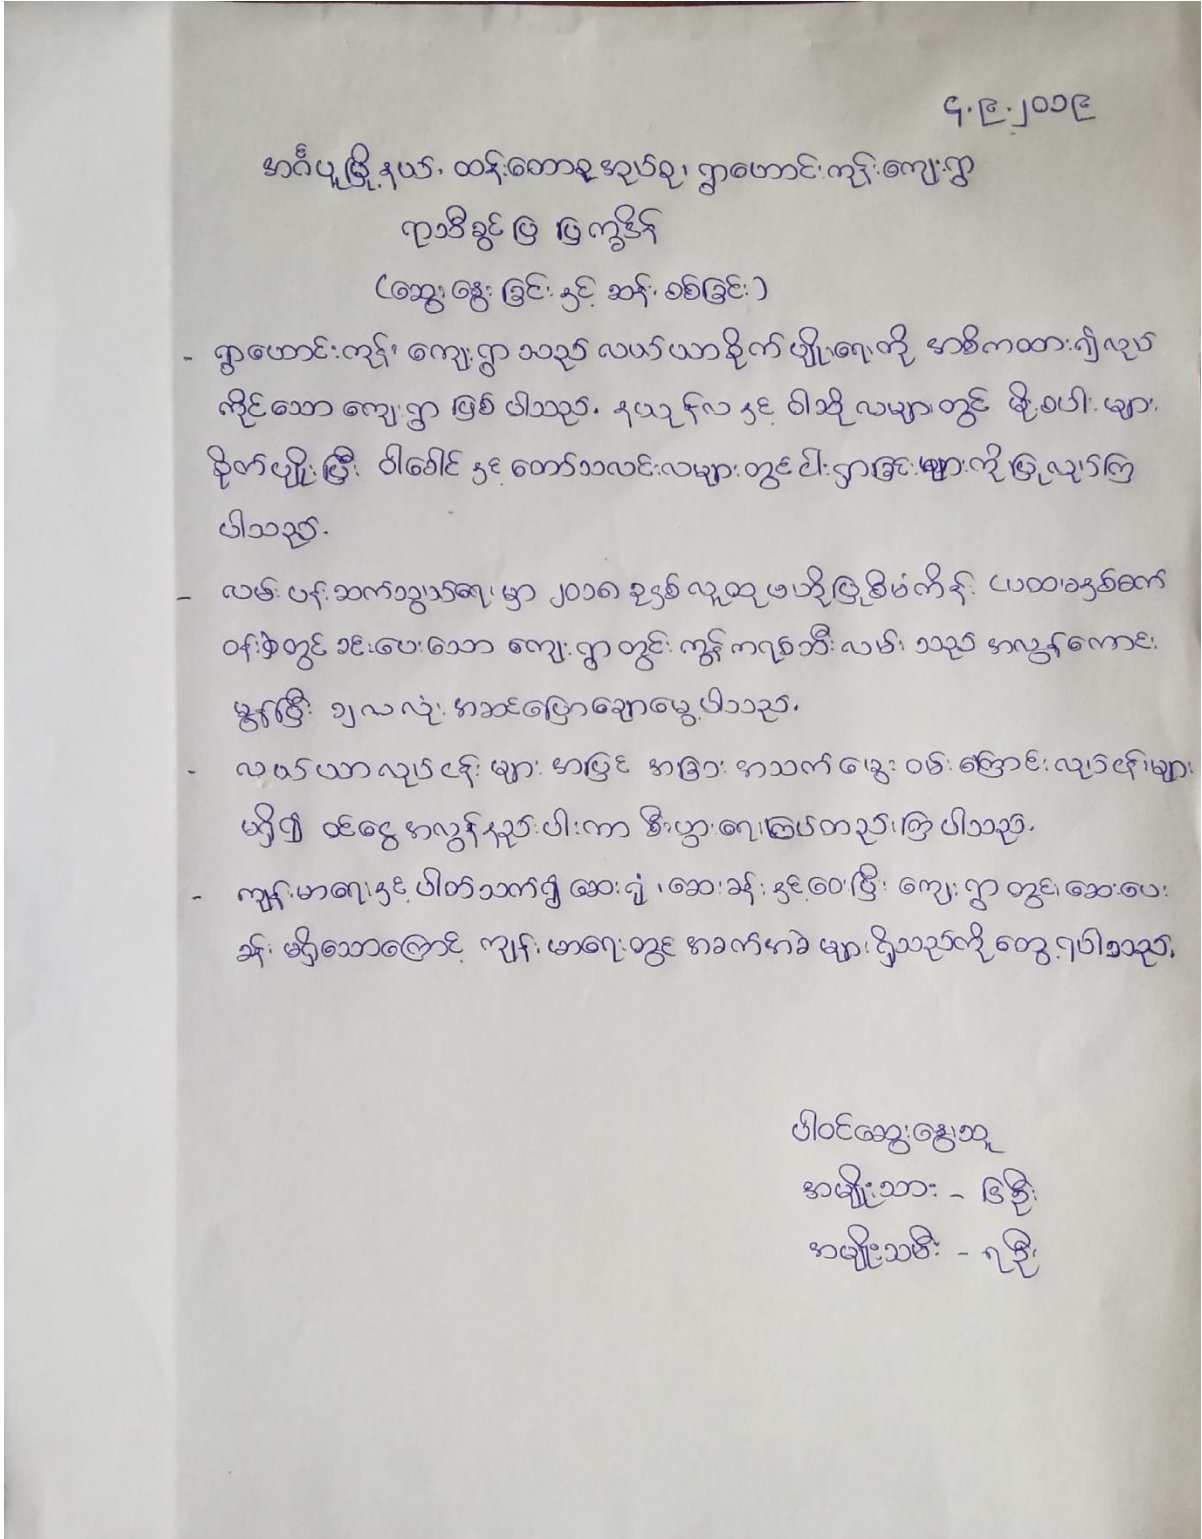 ၄.၉.၂၀၁၉
အင်္ဂပူမြို့နယ်၊ ထန်းတောစုအုပ်စု၊ ရွာဟောင်းကုန်းကျေးရွာ
ရာသီခွင်ပြ ပြက္ခဒိန်
(ဆွေးနွေးခြင်းနှင့် ဆန်းစစ်ခြင်း)
- ရွာဟောင်းကုန်း ကျေးရွာသည် လယ်ယာစိုက်ပျိုးရေးကို အဓိကထား၍လုပ်
ကိုင်သော ကျေးရွာ ဖြစ်ပါသည်. နယုန်လနှင့် ဝါဆိုလများတွင် မိုးစပါးများ
စိုက်ပျိုးပြီး ဝါခေါင်နှင့် တော်သလင်းလများတွင် ငါးရှာခြင်းများကို ပြုလုပ်ကြ
ပါသည်.
- လမ်းပန်းဆက်သွယ်ရေးမှာ ၂၀၁၈ ခုနှစ် လူထုဗဟိုပြုစီမံကိန်း ပထမနှစ်စက်
ဝန်းတွင် ခင်းပေးသော ကျေးရွာတွင်း ကွန်ကရစ်တံတီးလမ်း သည် အလွန်ကောင်း
မွန်ပြီး ၁၂လလုံး အဆင်ပြောချောမွေ့ပါသည်.
- လယ်ယာလုပ်ငန်းများ အပြင် အခြား အသက်မွေးဝမ်းကြောင်းလုပ်ငန်းများ
မရှိ၍ ဝင်ငွေ အလွန်နည်းပါးကာ စီးပွားရေးကြပ်တည်းကြပါသည်.
- ကျန်းမာရေးနှင့် ပါတ်သက်၍ ဆေးရုံ၊ဆေးခန်းနှင့်ဝေးပြီး ကျေးရွာတွင် ဆေးပေး
ခန်း မရှိသောကြောင့် ကျန်းမာရေးတွင် အခက်အခဲများရှိသည်ကို တွေ့ရပါသည်.
ပါဝင်ဆွေးနွေးသူ
အမျိုးသား - ၆ဦး
အမျိုးသမီး - ၇ဦး